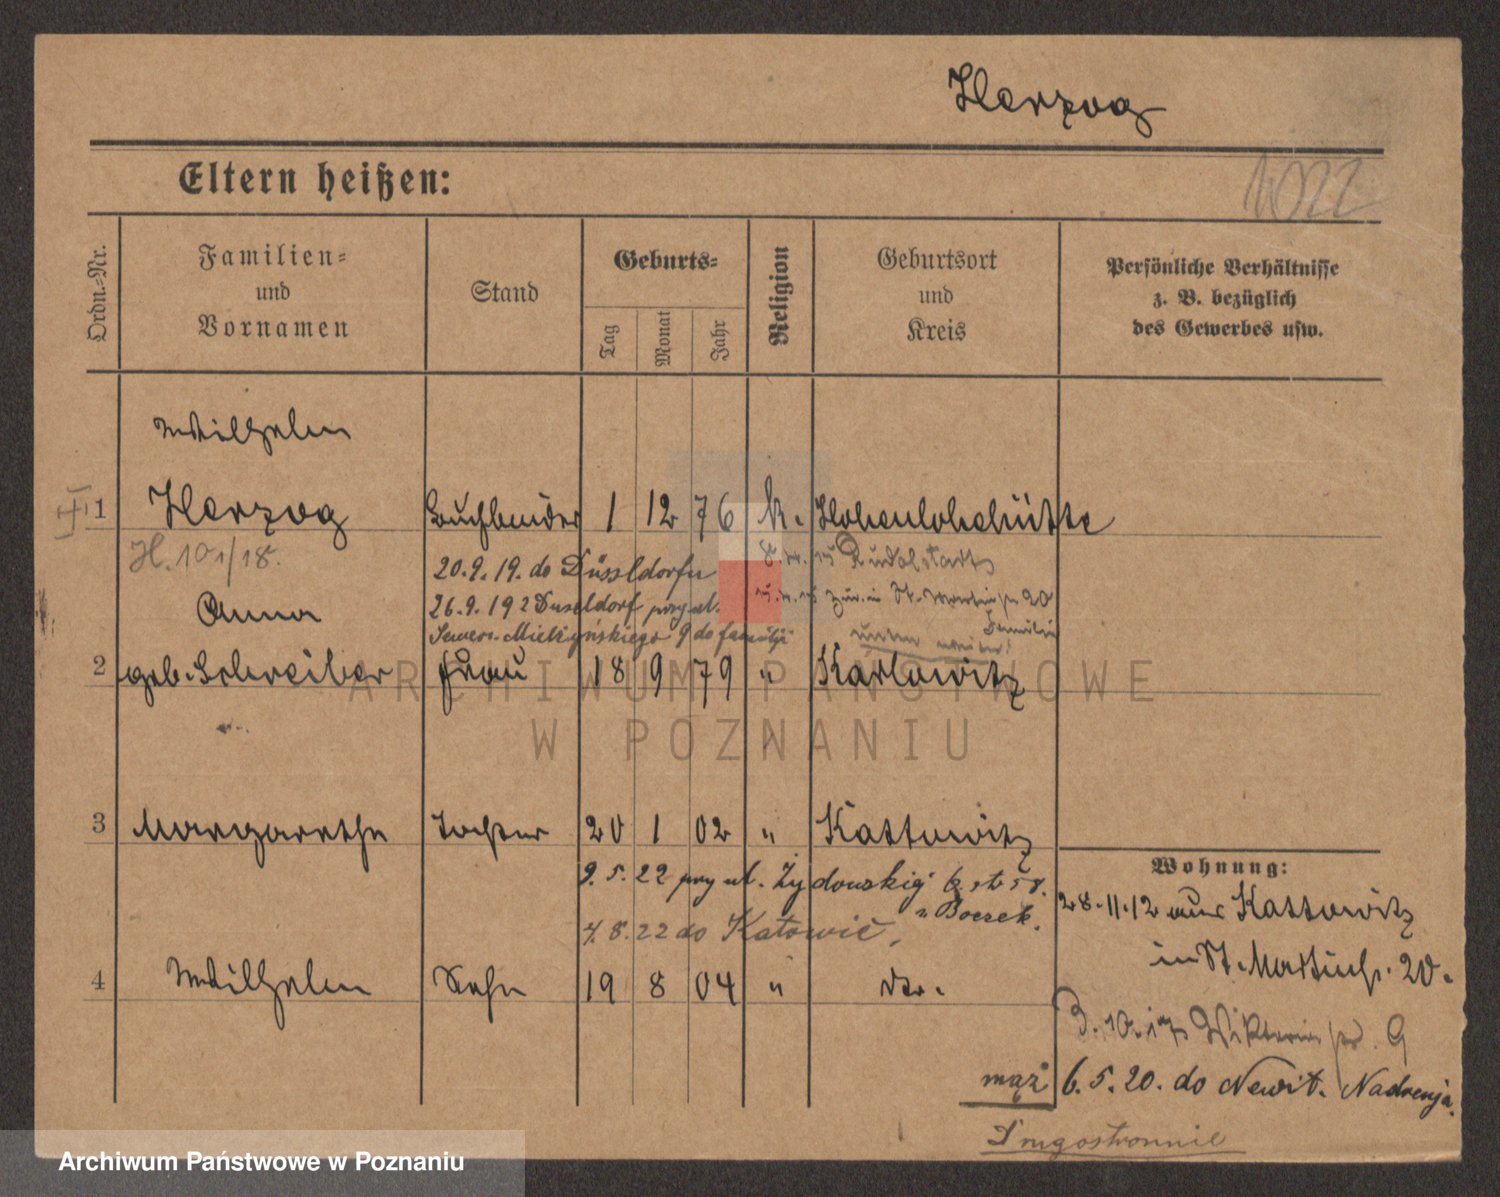 Herzog
Eltern heißen:
1022
Ordn.-Nr.
Familien-
und
Vornamen
Stand
Geburts-
Tag
Monat
Jahr
Religion
Geburtsort
und
Kreis
Persönliche Verhältnisse
z. B. bezüglich
des Gewerbes usw.
Wilhelm
1 Herzog Buchbinder 1 12 76 k. Hohenlohehütte
H. 101/18.
20.9.19. do Düsseldorfu
Rudolstadt
Anna
26.9.192 Duseldorf przy ul.
zur. in St. Martinstr 20
Sewer. Mielżyńskiego 9 do familji
Familie
2 geb. Schreiber Frau 18 9 79 " Karlowitz
3 Margarethe Tochter 20 1 02 " Kattowitz
9.5.22 przy ul. Żydowskiej 6.
Boczek.
7.8.22 do Katowic,
4 Wilhelm Sohn 19 8 04 " do.
Wohnung:
28.11.12 aus Kattowitz
in St. Martinstr. 20.
3.10.17 Viktoriastr. 9
mąż 6.5.20. do Newit. Nadrenja.
Drugostronnie
ARCHIWUM PAŃSTWOWE
W POZNANIU
Archiwum Państwowe w Poznaniu